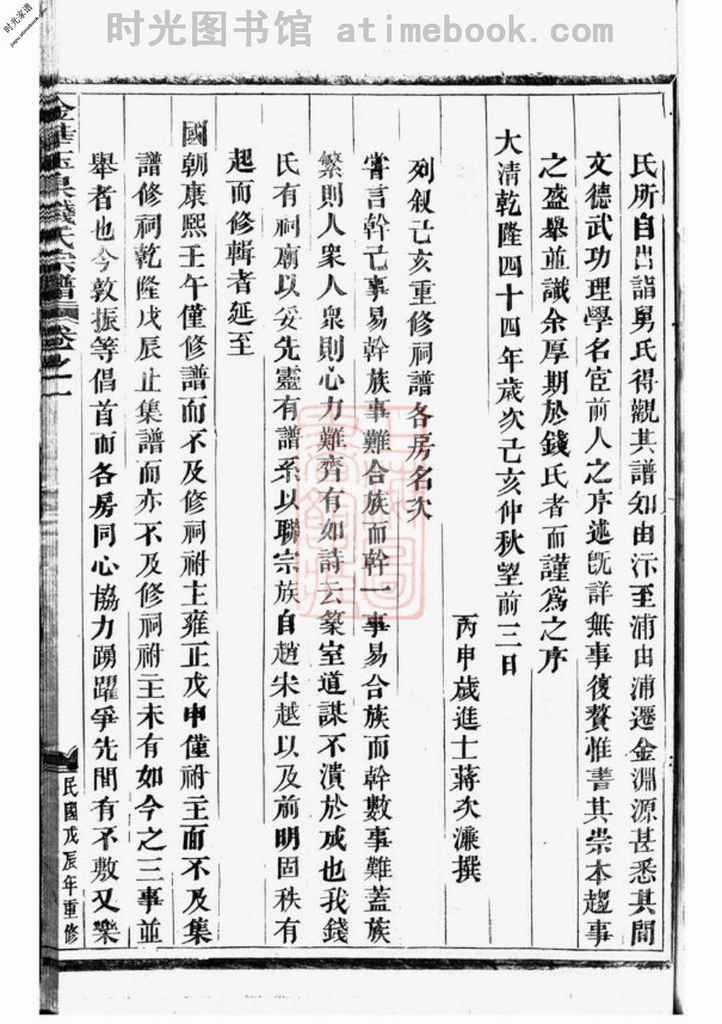 时光图书馆 atimebook.com
时光家谱
氏所自出詣舅氏得觀其譜知由汴至浦由浦遷金淵源甚悉其間
文德武功理學名宦前人之序述旣詳無事復贅惟書其崇本趨事
之盛舉並識余厚期於錢氏者而謹爲之序
大清乾隆四十四年歲次己亥仲秋望前三日
丙申歲進士蔣次濂撰
列敘己亥重修祠譜各房名次
嘗言幹己事易幹族事難合族而幹一事易合族而幹數事難蓋族
繁則人衆人衆則心力難齊有如詩云築室道謀不潰於成也我錢
氏有祠廟以妥先靈有譜系以聯宗族自趙宋越以及前明固秩有
起而修輯者延至
國朝康熙壬午僅修譜而不及修祠祔主雍正戊申僅祔主而不及集
譜修祠乾隆戊辰止集譜而亦不及修祠祔主未有如今之三事並
舉者也今敦振等倡首而各房同心協力踴躍爭先間有不敷又樂
金華玉泉錢氏宗譜 卷之二
民國戊辰年重修